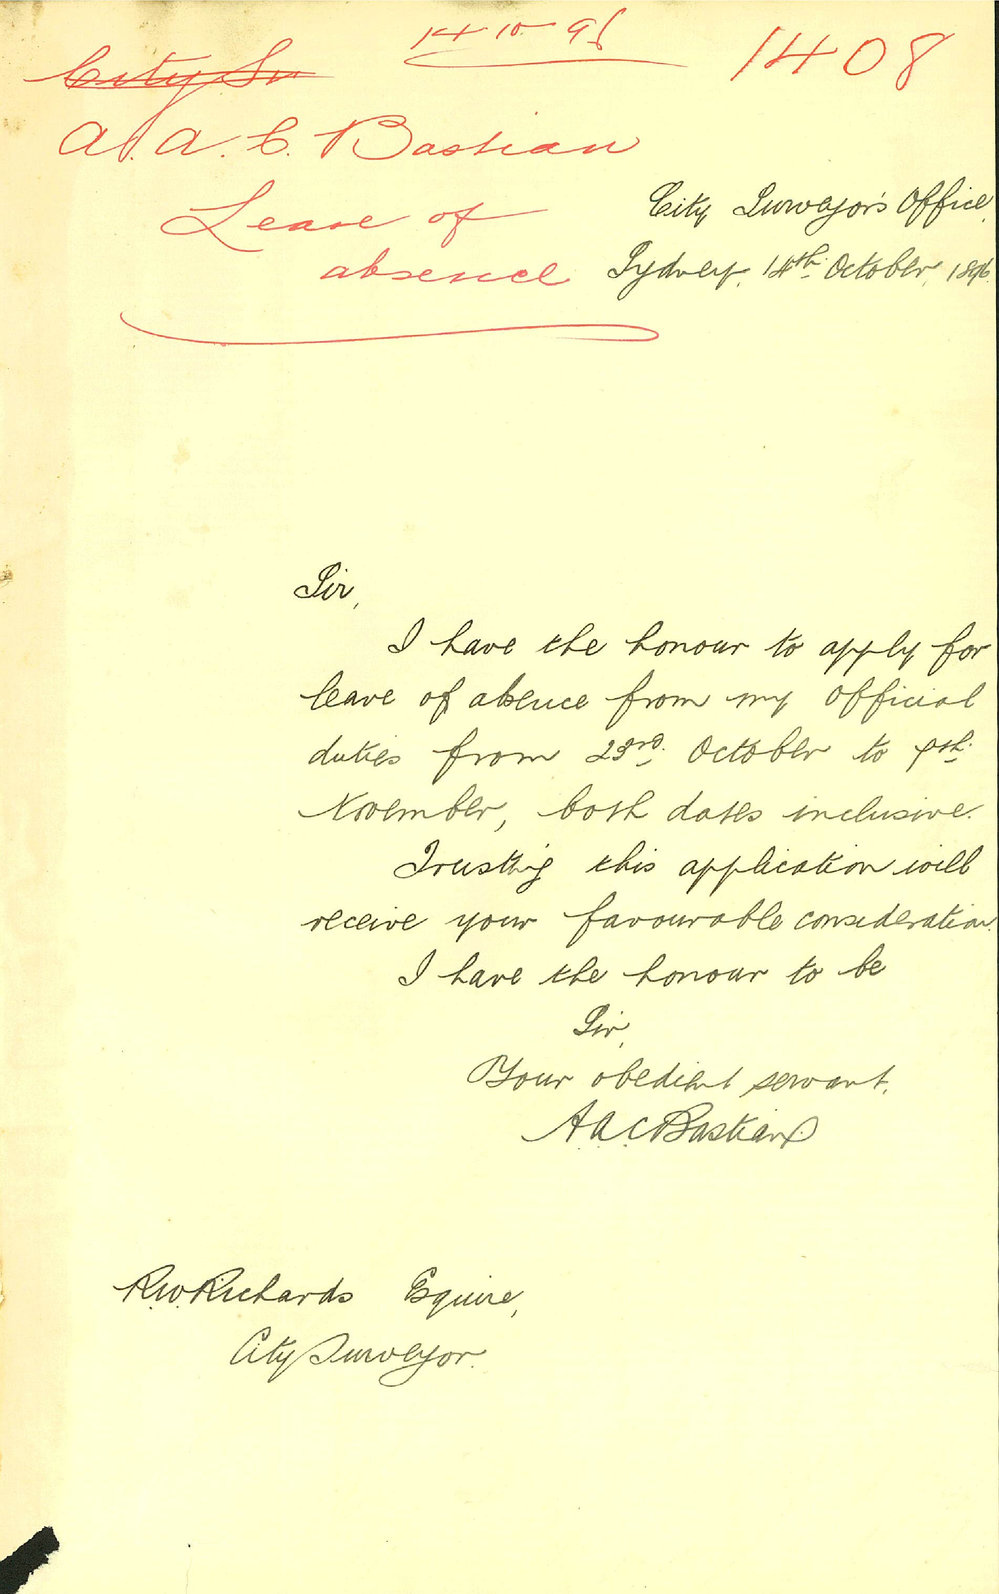 14-10-96
1408
City Su
A. A. C. Bastian
Leave of
absence
City Surveyor's Office,
Sydney, 14th October, 1896.
Sir,
I have the honour to apply for
leave of absence from my official
duties from 23rd October to
November, both dates inclusive.
Trusting this application will
receive your favourable consideration.
I have the honour to be
Sir,
Your obedient servant,
A A C Bastian
R.W. Richards Esquire,
City Surveyor.